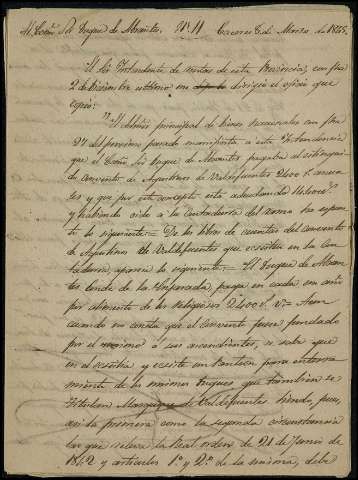 Al Excmo. Sor. Duque de Abrantes. Nº 11 Caceres 6 de Marzo de 1845.
El Sor. Intendente de rentas de esta Provincia, con fha
2 de ultimo me dirigió el oficio que
copio:
"El Admor. principal de bienes nacionales con fha
27 del proximo pasado manifiesta a esta Intendencia
que el Excmo. Sor. Duque de Abrantes pagaba al extinguido
convento de Agustinos de Valdefuentes 2400 r. anua
les y que por este concepto está adeudando
y habiendo oido a la Contaduria del ramo ha espues
to lo siguiente = De los libros de cuentas del convento
de Agustinos de Valdefuentes que ecsisten en la Con
taduria, aparece lo siguiente = El Duque de Abran
tes Conde de la Enjarada, paga en cada un año
por alimento de los religiosos 2400 r. vn = Aun
cuando no consta que el Convento fuese fundado
por el mismo ó sus ascendientes, se sabe que
en él ecsistia y ecsiste un Panteon para enterra
miento de los mismos Duques que tambien se
titulan Marqueses de Valdefuentes. Siendo, pues,
asi la primera como la segunda circunstancia
las que releva la Real orden de 21 de Junio de
1842 y articulos 1º y 2º de la misma, debe